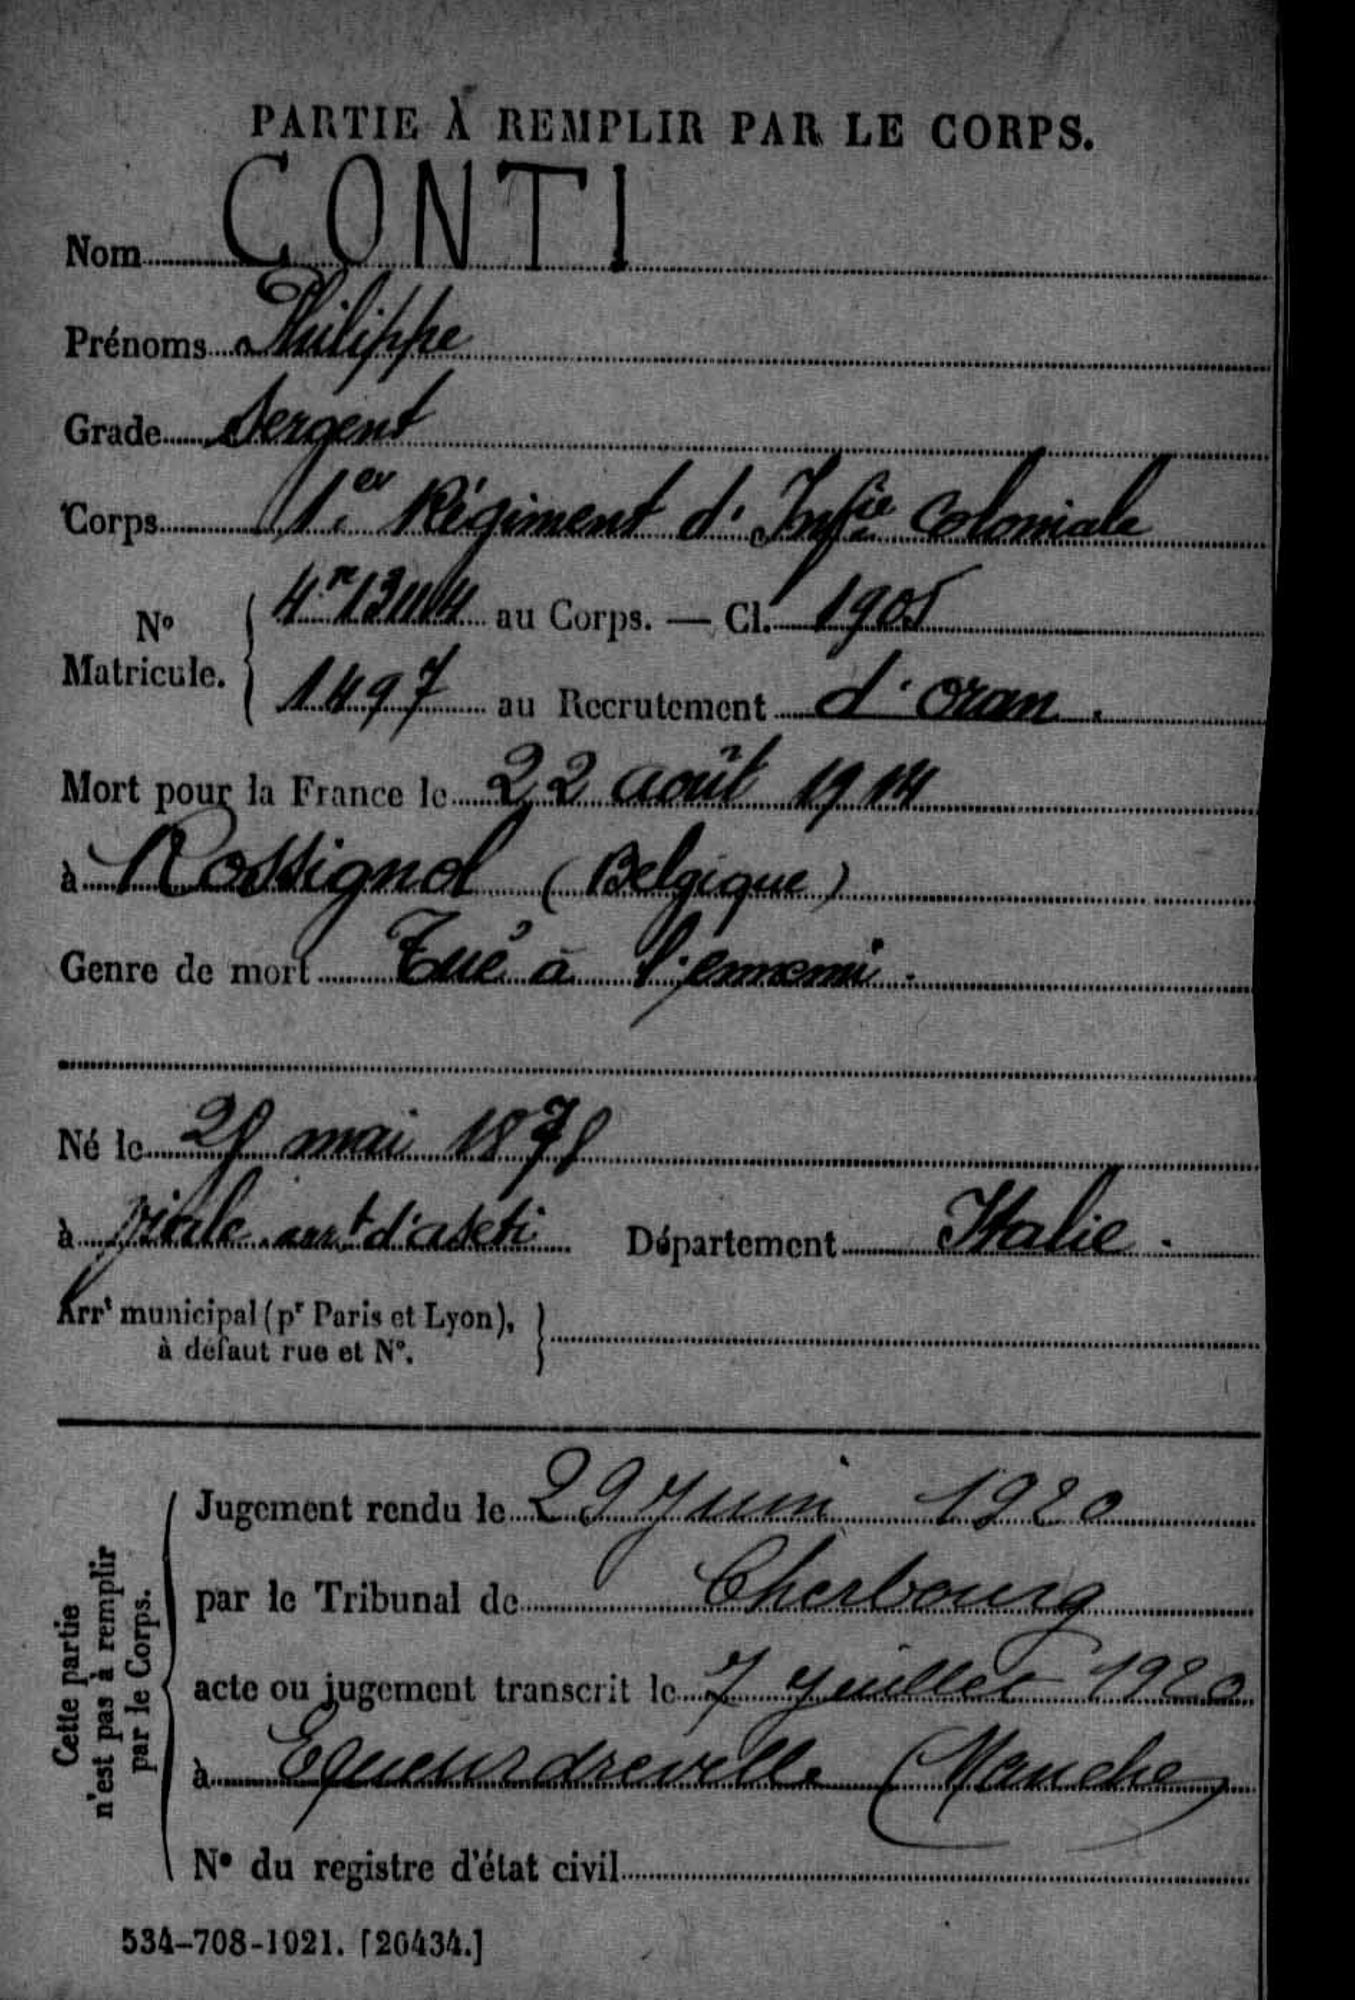 PARTIE À REMPLIR PAR LE CORPS.
Nom CONTI
Prénoms Philippe
Grade Sergent
Corps 1er Régiment d'Infie Coloniale
No Matricule. { au Corps. — Cl. 1905
1497 au Recrutement d'oran.
Mort pour la France le 22 août 1914
à Rossignol (Belgique)
Genre de mort Tué à l'ennemi.
Né le mai
à arrt d' Département Italie.
Arrt municipal (pr Paris et Lyon), }
à défaut rue et No.
Cette partie
n'est pas à remplir
par le Corps.
Jugement rendu le 29 Juin 1920
par le Tribunal de Cherbourg
acte ou jugement transcrit le 7 Juillet 1920
à Equeurdreville (Manche)
No du registre d'état civil
534-708-1921. [20434.]